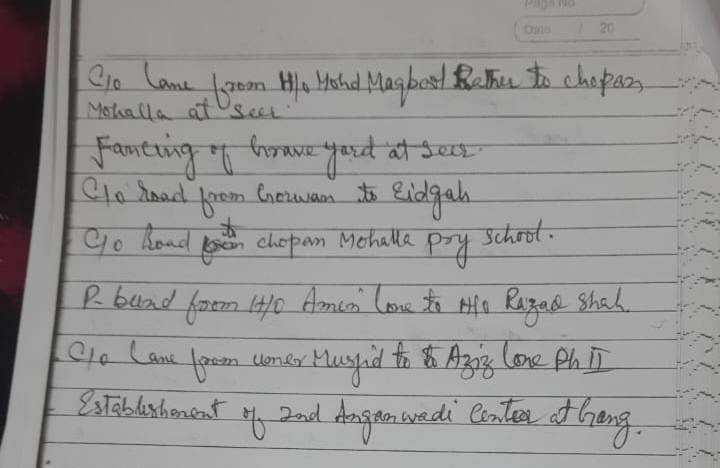 Page No
Date / 20
C/o Lane from H/o Mohd Maqbool Rather to chopan
Mohalla at Seer
Fancing of Grave yard at Seer.
C/o Road from Gorwan to Eidgah
C/o Road to chopan Mohalla pry School.
P-bund from H/O Amin Lone to H/o Razaq Shah.
C/o Lane from umer Musjid to Aziz Lone Ph II
Establishment of 2nd Anganwadi Center at Gang.